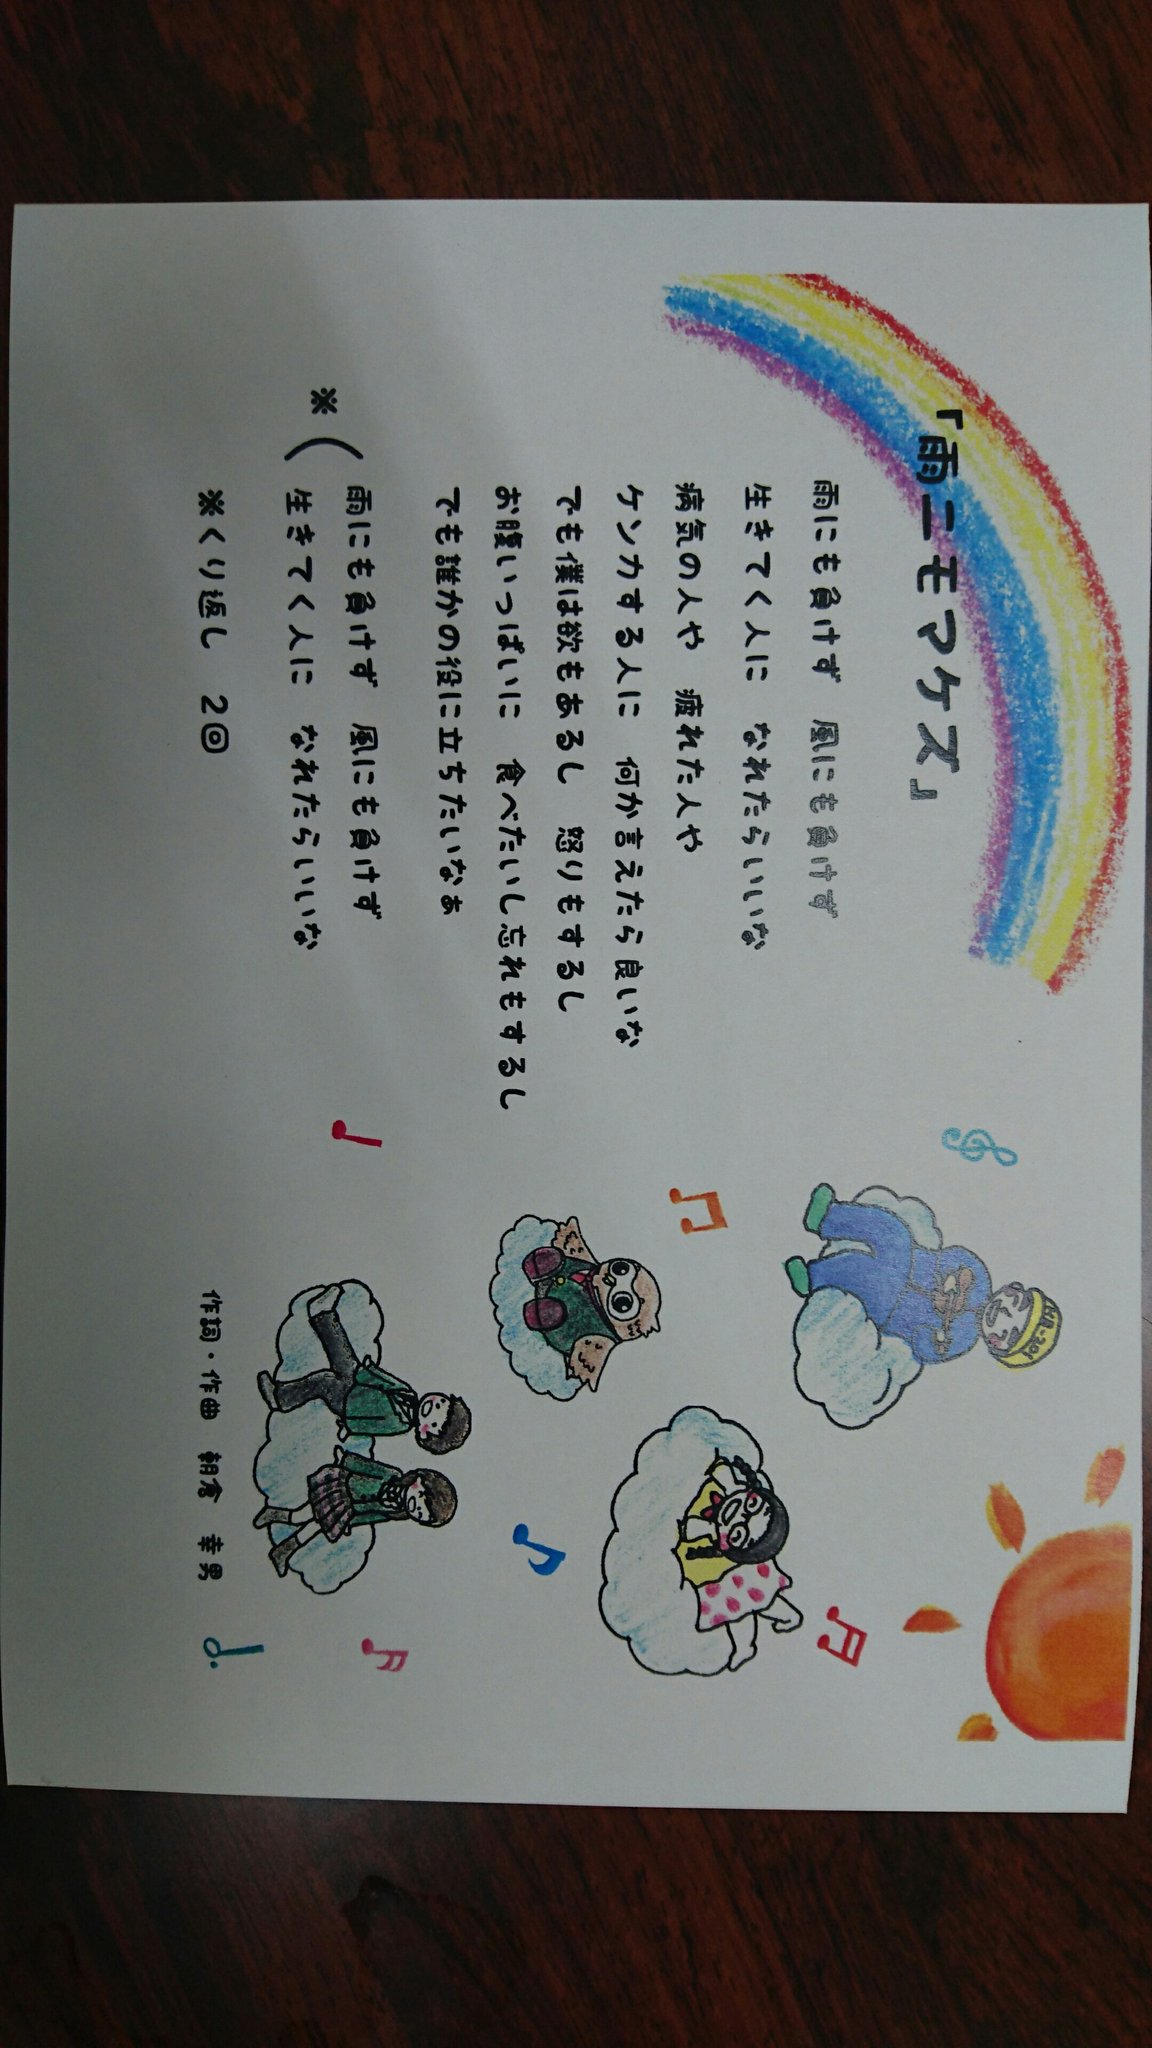 「雨ニモマケズ」
雨にも負けず 風にも負けず
生きてく人に なれたらいいな
病気の人や 疲れた人や
ケンカする人に 何か言えたら良いな
でも僕は欲もあるし 怒りもするし
お腹いっぱいに 食べたいし忘れもするし
でも誰かの役に立ちたいなぁ
※( 雨にも負けず 風にも負けず
生きてく人に なれたらいいな
※くり返し 2回
作詞・作曲 朝倉 幸男